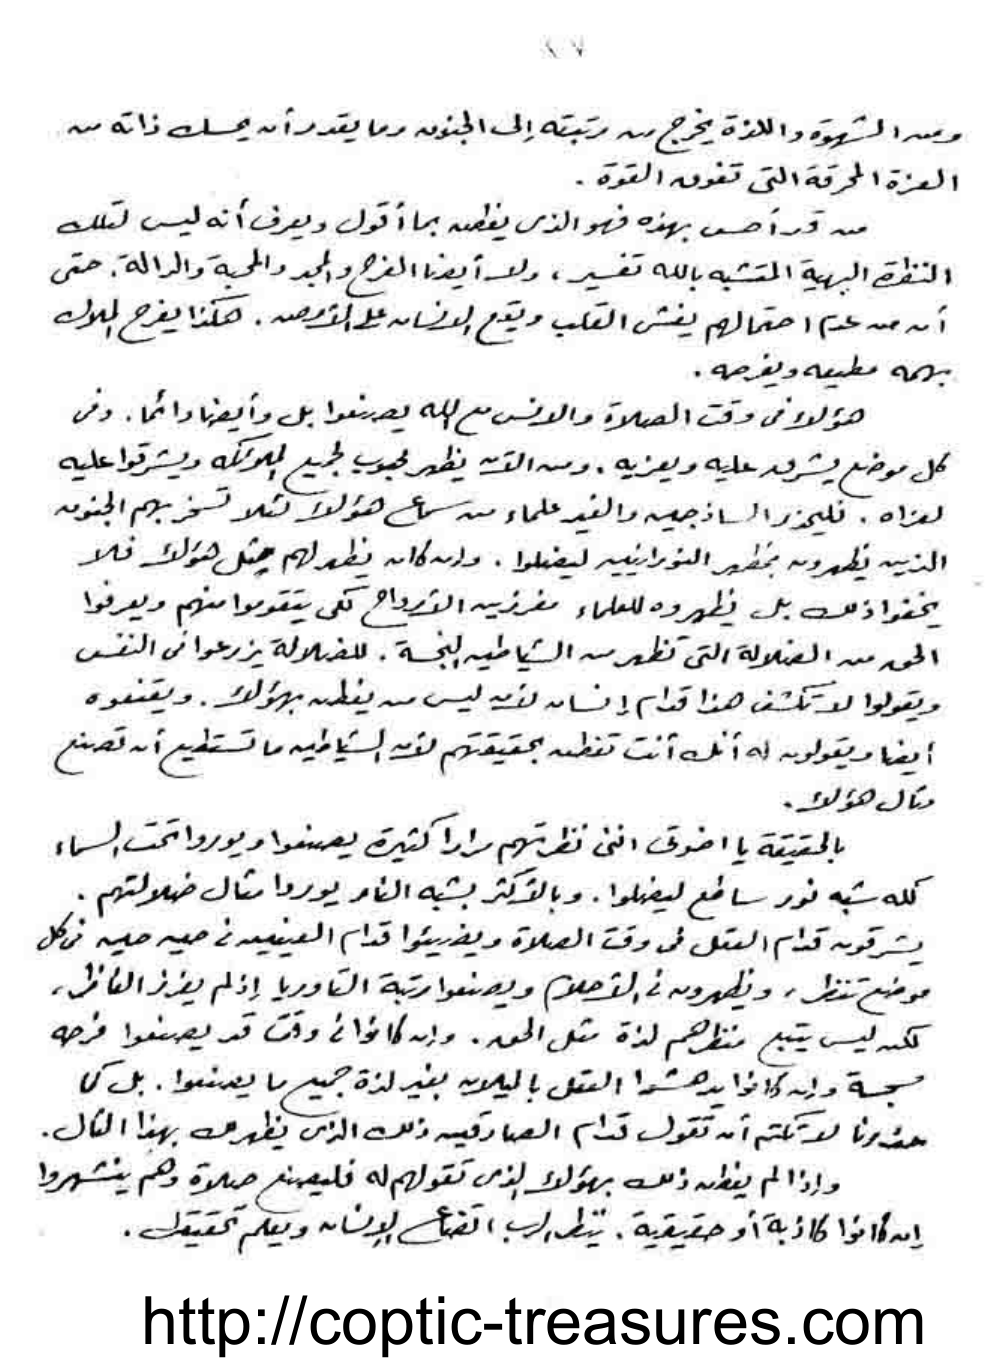 ومن الشهوة واللذة يخرج من رتبته إلى الجنون وما يقدر أن يمسك ذاته من
العزة المحرقة التى تفوق القوة .
من قد أحس بهذه فهو الذى يفطن بما أقول ويعرف أنه ليس لتلك
النظرة البهية المتشبه بالله تفسير ، ولا أيضا الفرح والمجد والمحبة والدالة . حتى
أن من عدم احتمالهم يغشى القلب ويقع الإنسان على الأرض . هكذا يفرح الملاك
بهمه مطيعه ويفرحه .
هؤلاء فى وقت الصلاة والانس مع الله يصنعوا بل وأيضا دائما . وفى
كل موضع يشرق عليه ويعزيه . ومن الآن يظهر محبوب لجميع الملائكة ويشرقوا عليه
لعزاه . فليحذر الساذجين والغير علماء من سماع هؤلاء لئلا تسخر بهم الجنون
الذين يظهرون بمظهر النورانيين ليضلوا . وإن كان يظهر لهم مثل هؤلاء فلا
يخفوا ذلك بل يظهروه للعلماء مفرزين الأرواح لكى يتقوموا منهم ويعرفوا
الحق من الضلالة التى تظهر من الشياطين النجسة . للضلالة يزرعوا فى النفس
ويقولوا لا تكشف هذا قدام إنسان لأن ليس من يفطن بهؤلاء . ويقنعوه
أيضا ويقولون له أنك أنت تفطن بحقيقتهم لأن الشياطين ما تستطيع أن تصنع
مثال هؤلاء .
بالحقيقة يا اخوتى اننى نظرتهم مرارا كثيرة يصنعوا ويوروا تحت السماء
كله شبه نور ساطع ليضلوا . وبالأكثر بشبه النار يوروا مثال ضلالتهم .
يشرقون قدام العقل فى وقت الصلاة ويضيئوا قدام العينين فى حين حين فى كل
موضع تنظر ، ويظهرون فى الأحلام ويصنعوا رتبة التاوريا إذ لم يفرز الناظر ،
لكن ليس يتبع منظرهم لذة مثل الحق . وإن كانوا فى وقت قد يصنعوا فرحه
سمجة وإن كانوا يدهشوا العقل بالميلان بغير لذة جميع ما يصنعوا . بل كما
حذرنا لا تكتم أن تقول قدام الصادقين ذلك الذى يظهر لك بهذا المثال .
وإذا لم يفطن ذلك بهؤلاء الذى تقولهم له فليصنع صلاة وهم ينشهروا
إن كانوا كاذبة أو حقيقية . ينظر الرب اتضاع الإنسان ويعلم تحقيقك .
http://coptic-treasures.com